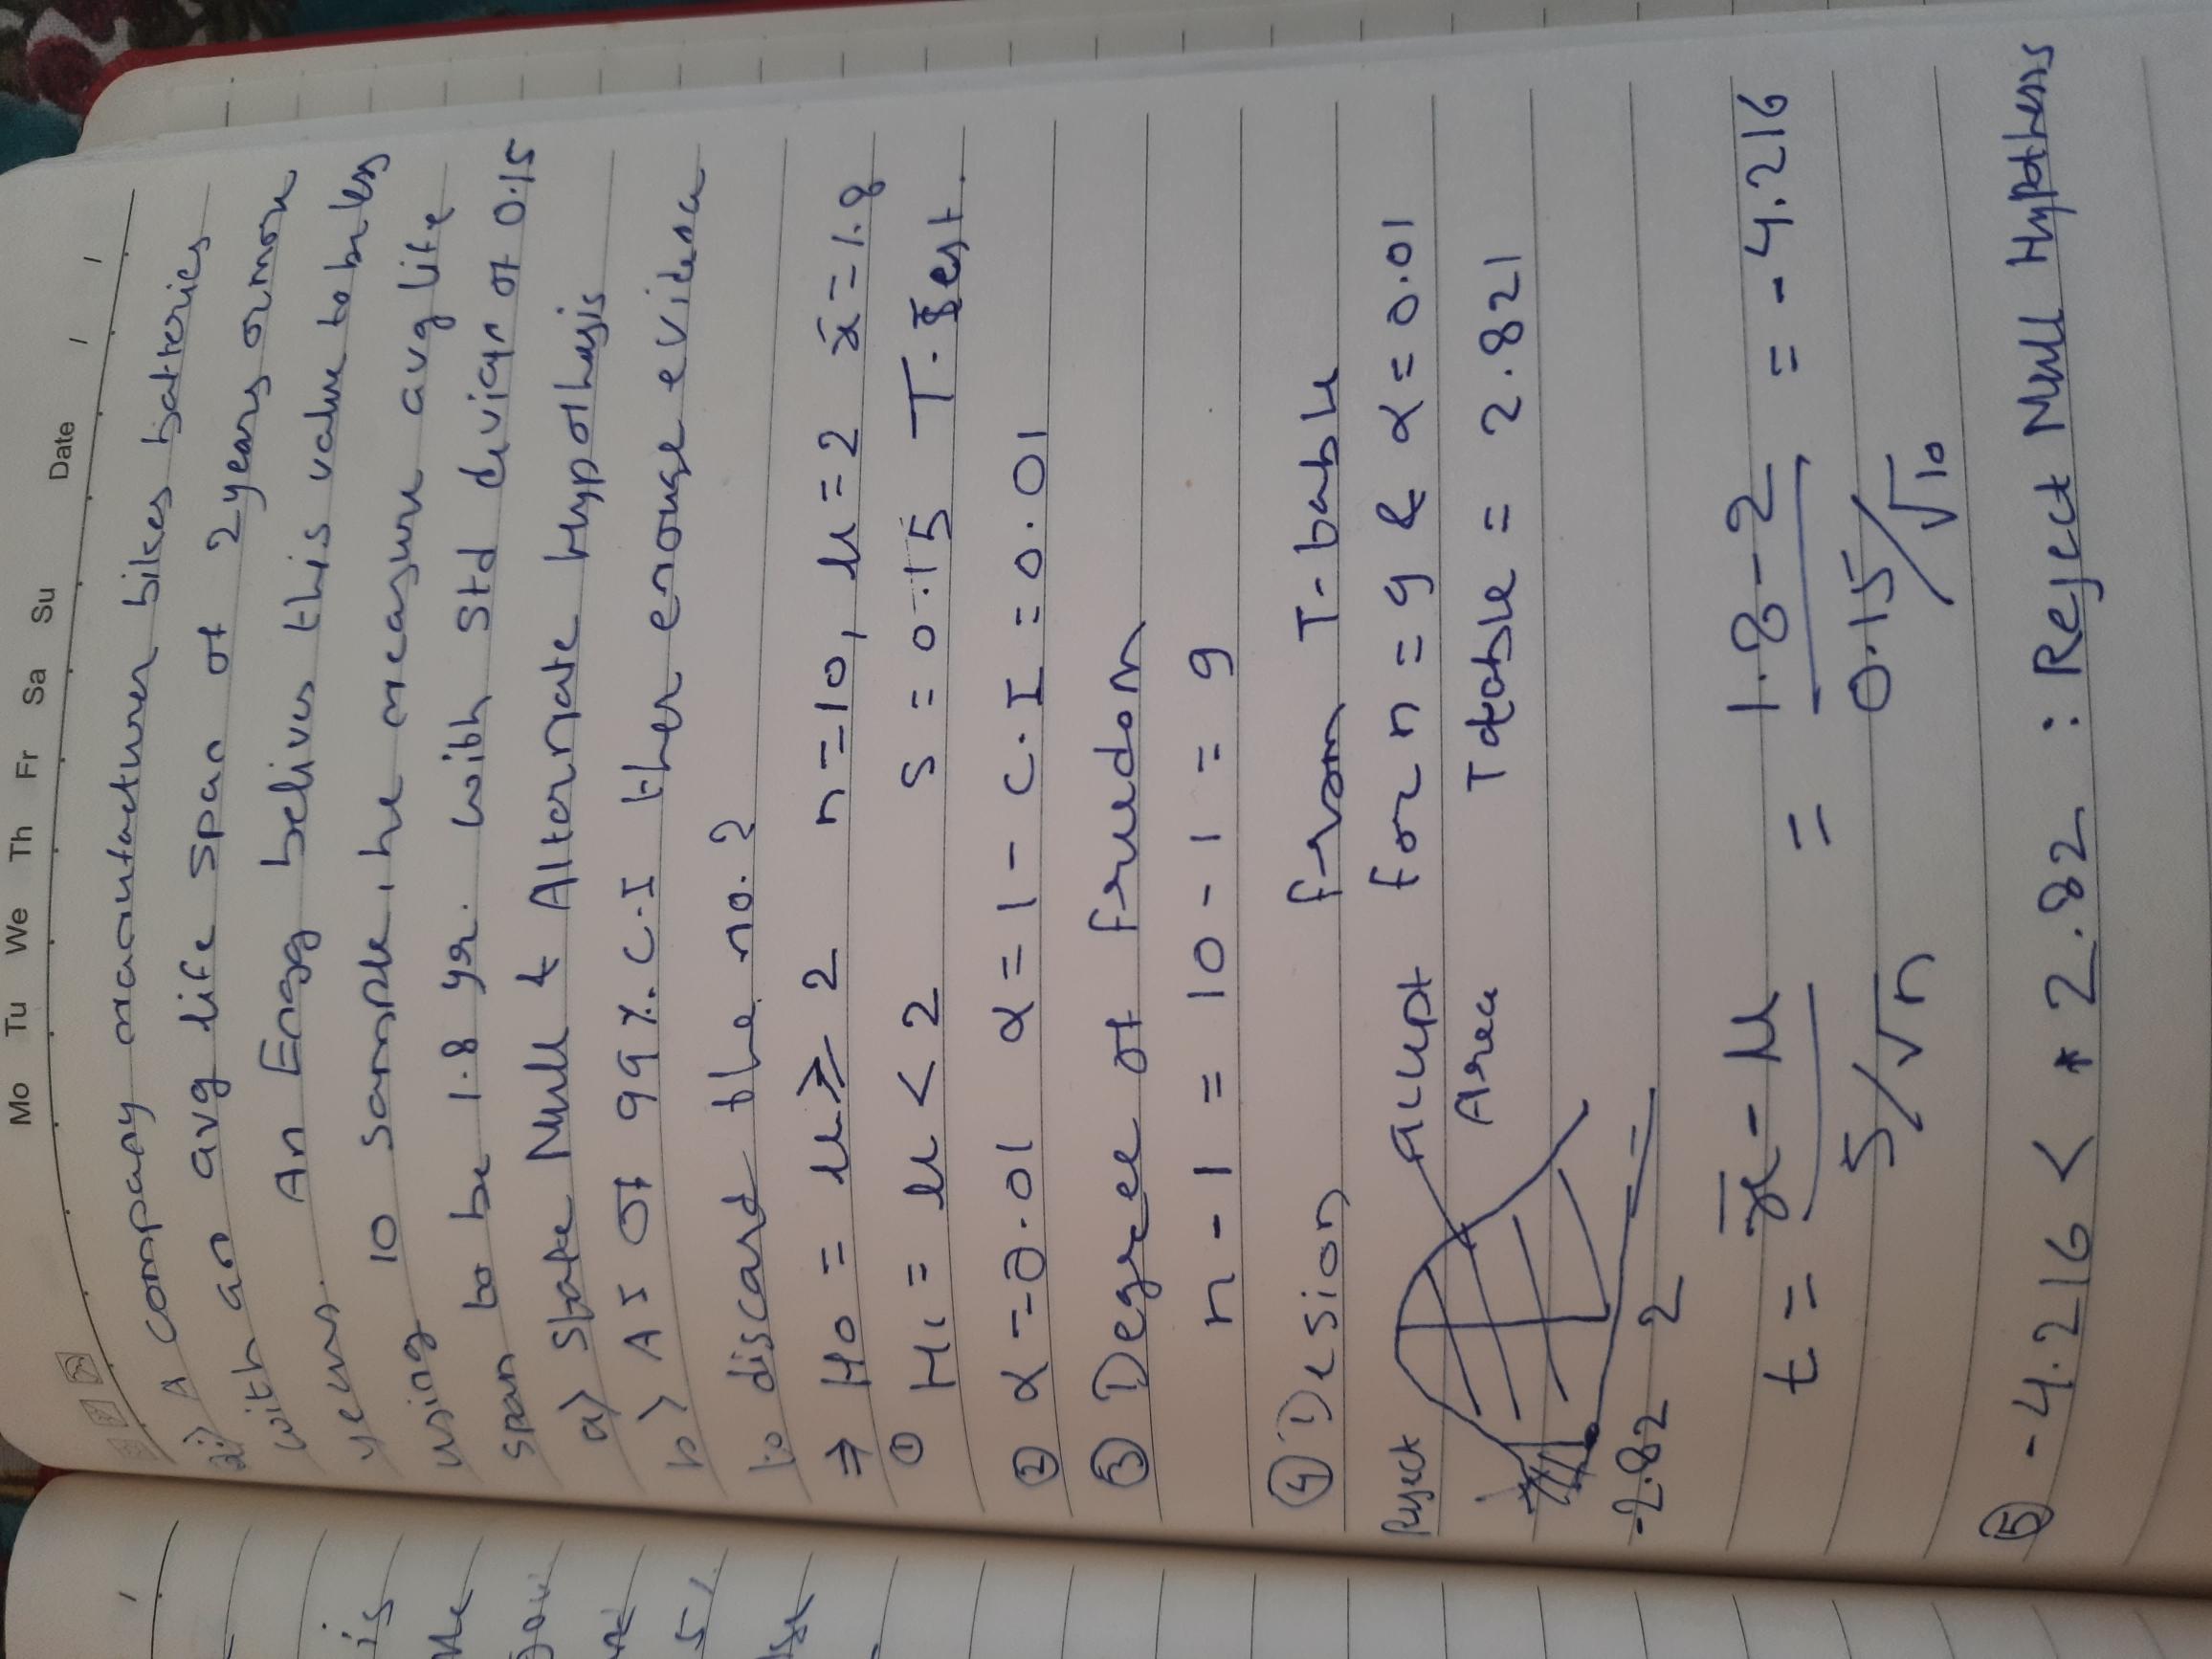 Mo Tu We Th Fr Sa Su Date / /
Q:) A company manufacturer bikes batteries
with an avg life span of 2 years or more
years. An Engg belives this value to be less
using 10 sample, he measure avg life
span to be 1.8 yr. with std deviatn of 0.15
a) State Null & Alternate Hypothesis
b) At of 99%. C.I ther enouge evidena
to discard the no. ?
⇒ H0 = μ ≥ 2 n=10, μ=2 x̄=1.8
① H1 = μ < 2 S = 0.15 T-test.
② α = 0.01 α = 1 - C.I = 0.01
③ Degree of freedom
n - 1 = 10 - 1 = 9
④ Desion from T-table
Reject Accept for n = 9 & α = 0.01
Area T table = 2.821
-2.82 2
t = x̄ - μ / S/√n = 1.8 - 2 / 0.15/√10 = -4.216
⑤ -4.216 < 2.82 : Reject Null Hypothesis
is
the
51.